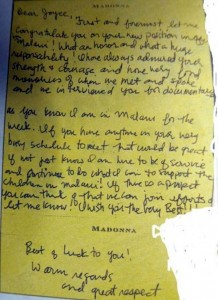 MADONNA
Dear Joyce,
First and foremost let me
congratulate you on your new position in office
Malawi! What an honor and what a huge
responsibility. I have always admired your
strength & courage and have very fond
memories of when we met and spoke
and we interviewed you for documentary
As you know I am in Malawi for the
week. If you have anytime in your very
busy schedule to meet that would be great
if not just know I am here to be of service
and continue to do what I can to support the
children in Malawi. If there is a project
you can think of that we can join
let me know. I wish you the very Best!
MADONNA
Best of luck to you!
Warm regards
and great respect